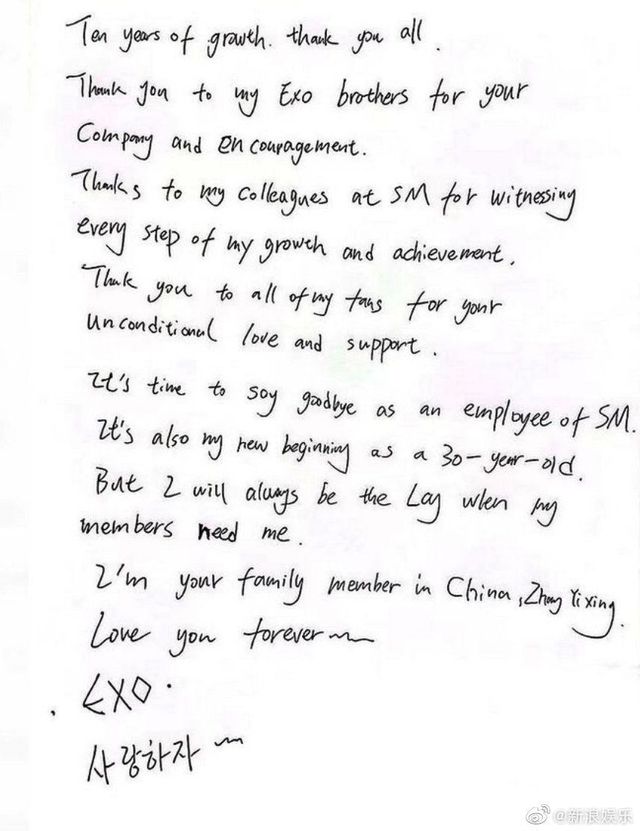 Ten years of growth. thank you all.
Thank you to my Exo brothers for your
Company and encouragement.
Thanks to my colleagues at SM for witnessing
every step of my growth and achievement.
Thank you to all of my fans for your
unconditional love and support.
It's time to say goodbye as an employee of SM.
It's also my new beginning as a 30-year-old.
But I will always be the Lay when my
members need me.
I'm your family member in China, Zhang Yixing.
Love you forever~
EXO.
사랑하자~
@新浪娱乐